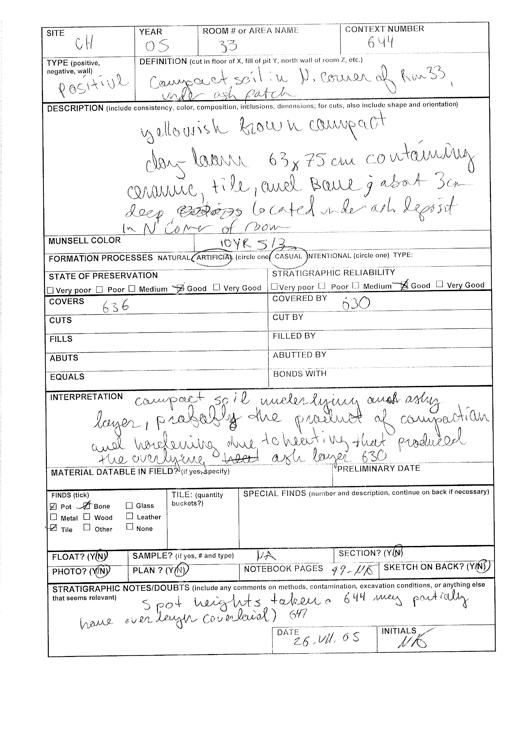 SITE YEAR ROOM # or AREA NAME CONTEXT NUMBER
CH 05 33 644
TYPE (positive, negative, wall) DEFINITION (cut in floor of X, fill of pit Y, north wall of room Z, etc.)
Positive Compact soil in N. corner of Rm 33,
under ash patch
DESCRIPTION (include consistency, color, composition, inclusions, dimensions; for cuts, also include shape and orientation)
yellowish brown compact
clay loam 63 x 75 cm containing
ceramic, tile, and Bone g about 3cm
deep located under ash deposit
in N Corner of room
MUNSELL COLOR 10YR 5/3
FORMATION PROCESSES NATURAL ARTIFICIAL (circle one) CASUAL INTENTIONAL (circle one) TYPE:
STATE OF PRESERVATION STRATIGRAPHIC RELIABILITY
Very poor Poor Medium Good Very Good Very poor Poor Medium Good Very Good
COVERS 636 COVERED BY 630
CUTS CUT BY
FILLS FILLED BY
ABUTS ABUTTED BY
EQUALS BONDS WITH
INTERPRETATION compact soil underlying ashy
layer, probably the product of compaction
and hardening due to heating that produced
the overlying ash layer 630
MATERIAL DATABLE IN FIELD? (if yes, specify) PRELIMINARY DATE
FINDS (tick) TILE: (quantity buckets?) SPECIAL FINDS (number and description, continue on back if necessary)
Pot Bone Glass
Metal Wood Leather
Tile Other None
FLOAT? (Y/N) SAMPLE? (if yes, # and type) NA SECTION? (Y/N)
PHOTO? (Y/N) PLAN? (Y/N) NOTEBOOK PAGES 99-NK SKETCH ON BACK? (Y/N)
STRATIGRAPHIC NOTES/DOUBTS (include any comments on methods, contamination, excavation conditions, or anything else
that seems relevant) Spot heights taken. 644 may partially
have overlayn (overlaid) 647
DATE 26.VII.05 INITIALS NK